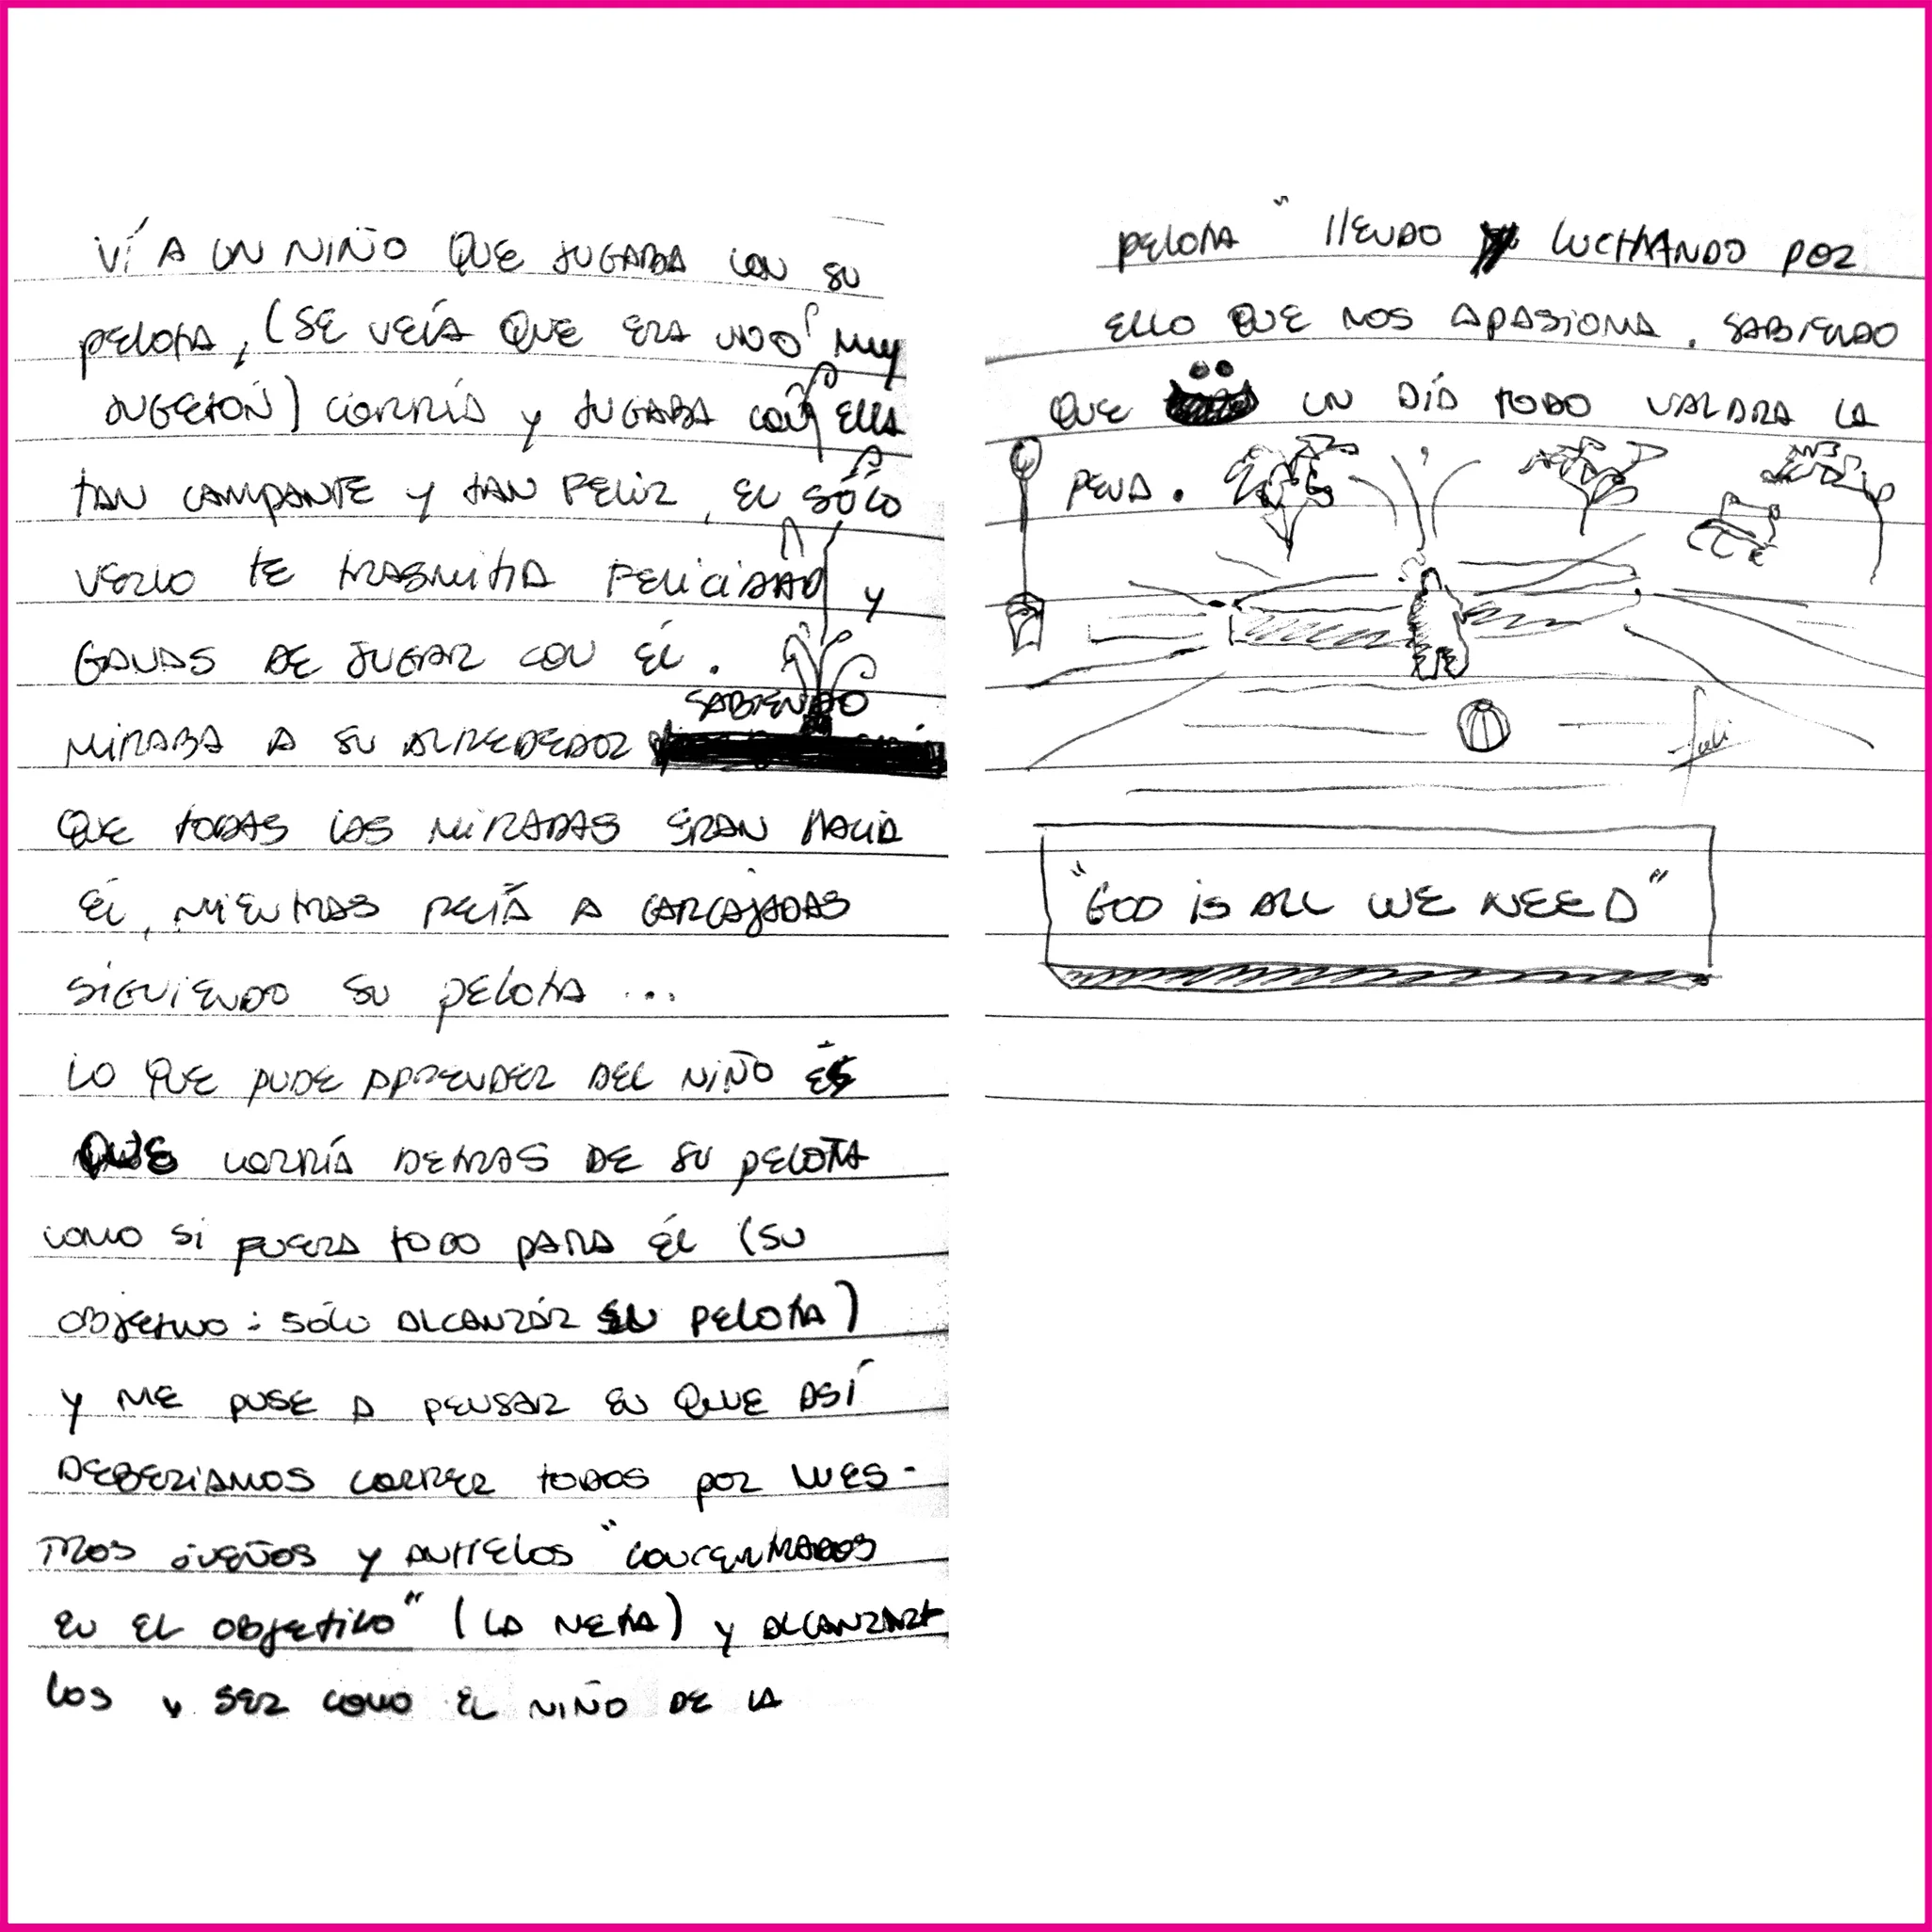 VÍ A UN NIÑO QUE JUGABA CON SU
PELOTA, (SE VEÍA QUE ERA UNO MUY
JUGETÓN) CORRÍA Y JUGABA CON ELLA
TAN CAMPANTE Y TAN FELIZ, EL SÓLO
VERLO TE TRASMITIA FELICIDAD Y
GANAS DE JUGAR CON ÉL.
MIRABA A SU ALREDEDOR SABIENDO
QUE TODAS LAS MIRADAS ERAN HACIA
ÉL, MIENTRAS REÍA A CARCAJADAS
SIGUIENDO SU PELOTA ...
LO QUE PUDE APRENDER DEL NIÑO ES
QUE CORRÍA DETRAS DE SU PELOTA
COMO SI FUERA TODO PARA ÉL (SU
OBJETIVO: SÓLO ALCANZÁR SU PELOTA)
Y ME PUSE A PENSAR EN QUE ASÍ
DEBERIAMOS CORRER TODOS POR NUES-
TROS SUEÑOS Y ANHELOS "CONCENTRADOS
EN EL OBJETIVO" (LA META) Y ALCANZAR
LOS Y SER COMO EL NIÑO DE LA
PELOTA" LLENDO LUCHANDO POR
ELLO QUE NOS APASIONA. SABIENDO
QUE UN DÍA TODO VALDRA LA
PENA.
Juli
"GOD IS ALL WE NEED"